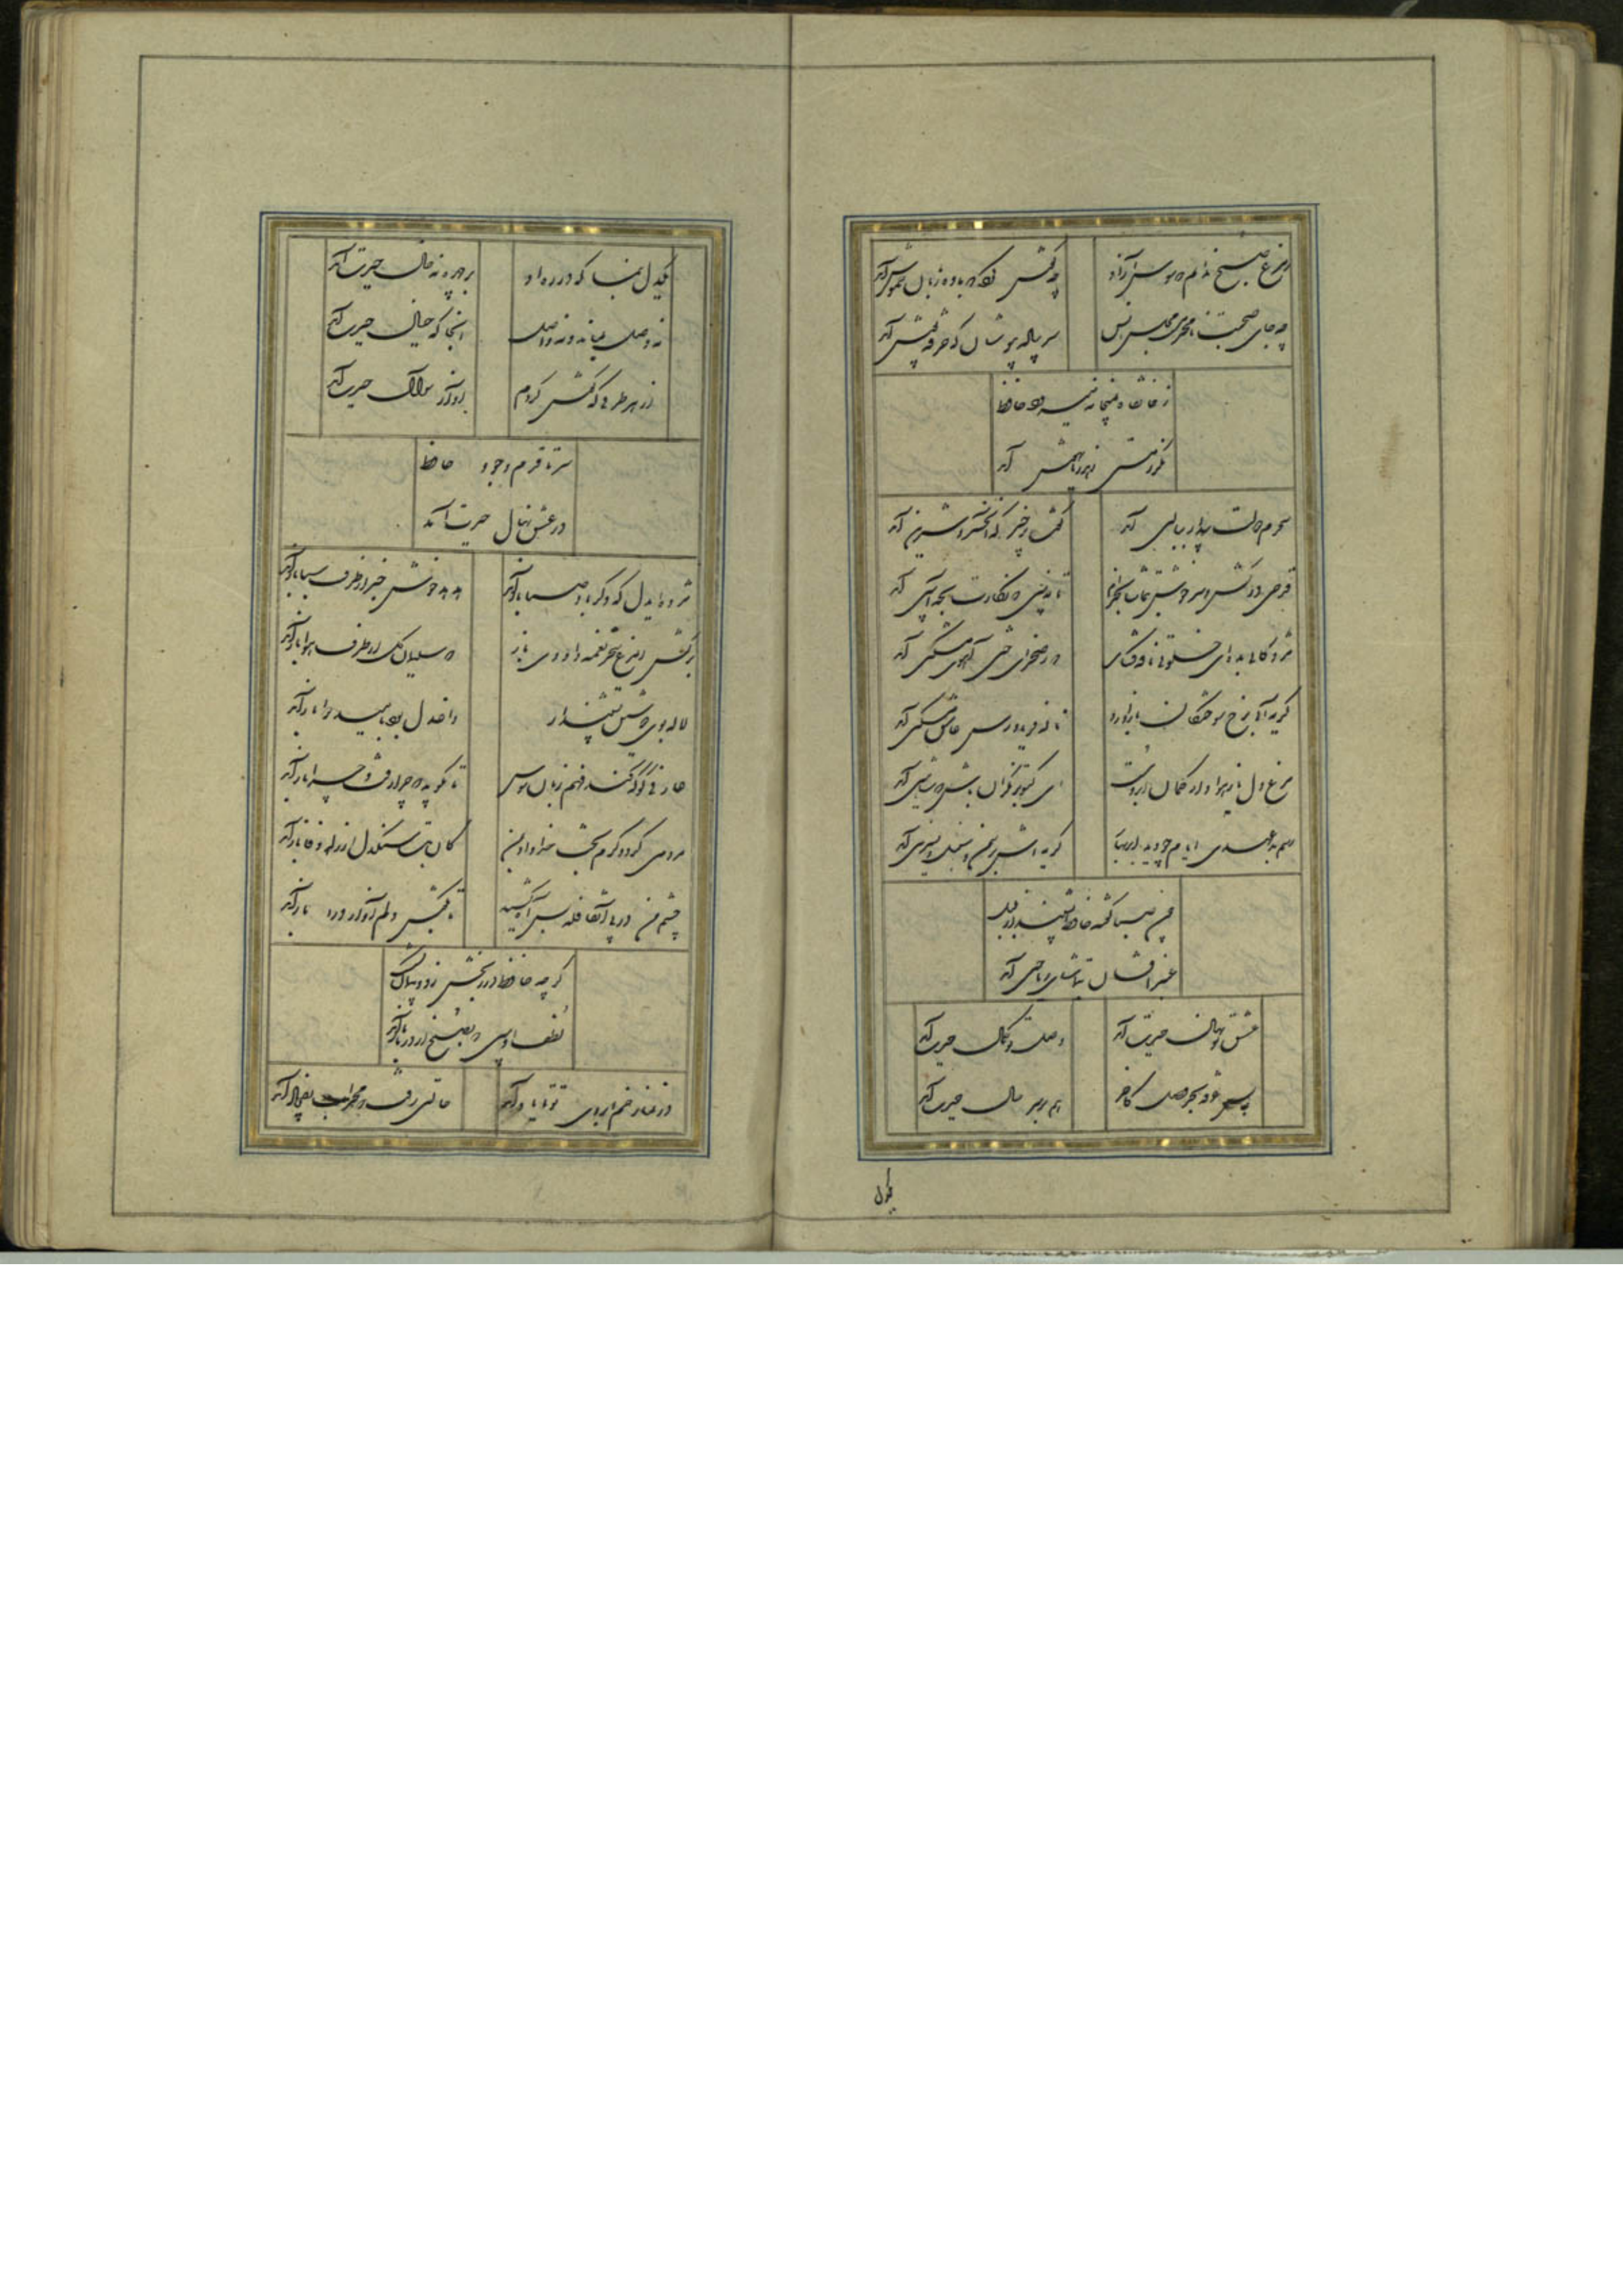 ز مرغ صبح ندانم که سوسن آزاد
چه گوش کرد که با ده زبان خموش آمد
چه جای صحبت نامحرم است مجلس انس
سر پیاله بپوشان که خرقه پوش آمد
ز خانقاه به میخانه میرود حافظ
مگر ز مستی زهد ریا بهوش آمد
سحرم دولت بیدار ببالین آمد
گفت برخیز که آن خسرو شیرین آمد
قدحی درکش و سرخوش بتماشا بخرام
تا ببینی که نگارت بچه آیین آمد
مژدگانی بده ای خلوتی نافه گشای
که ز صحرای ختن آهوی مشکین آمد
گریه آبی برخ سوختگان باز آورد
ناله فریادرس عاشق مسکین آمد
مرغ دل باز هوادار کمان ابرویست
ای کبوتر نگران باش که شاهین آمد
رسم بدعهدی ایام چو دید ابر بهار
گریه اش بر سمن و سنبل و نسرین آمد
چون صبا گفته حافظ بشنید از بلبل
عنبرافشان بتماشای ریاحین آمد
عشق تو نهال حیرت آمد
وصل تو کمال حیرت آمد
بس غرقه بحر وصل کاخر
هم بر سر حال حیرت آمد
یکدل
یکدل بنما که در ره او
بر چهره نه خال حیرت آمد
نه وصل بماند و نه واصل
آنجا که خیال حیرت آمد
از هر طرفی که گوش کردم
آواز سؤال حیرت آمد
سر تا قدم وجود حافظ
در عشق نهال حیرت آمد
مژده ایدل که دگر باد صبا باز آمد
هدهد خوش خبر از طرف سبا باز آمد
برکش ای مرغ سحر نغمه داودی باز
که سلیمان گل از طرف هوا باز آمد
لاله بوی می نوشین بشنید
داغ دل بود بامید دوا باز آمد
عارفی کو که کند فهم زبان سوسن
تا بگوید که چرا رفت و چرا باز آمد
مردمی کرد و کرم بخت خداداد بمن
کان بت سنگدل از راه وفا باز آمد
چشم من در پی آن قافله بس آب کشید
تا بگوش دلم آواز درا باز آمد
گرچه حافظ در رنجش زد و پیمان بشکست
لطف او بین که بصلح از در ما باز آمد
در نمازم خم ابروی تو با یاد آمد
حالتی رفت که محراب بفریاد آمد